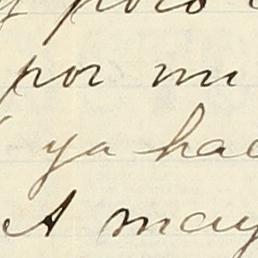 y poco
por mi
ya hac
A may